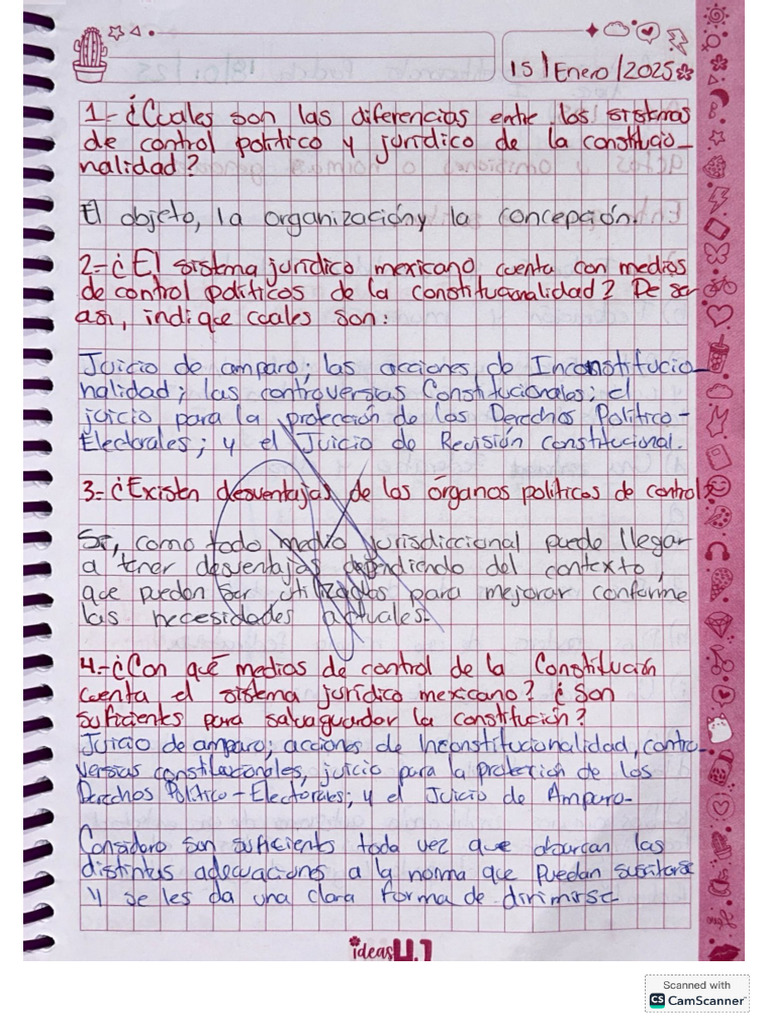 15/Enero/2025
1- ¿Cuales son las diferencias entre los sistemas
de control político y jurídico de la constitucio_
nalidad?
El objeto, la organización y la concepción.
2- ¿El sistema jurídico mexicano cuenta con medios
de control políticos de la constitucionalidad? De ser
asi, indique cuales son:
Juicio de amparo; las acciones de Inconstitucio_
nalidad; las controversias Constitucionales; el
juicio para la protección de los Derechos Político-
Electorales; y el Juicio de Revisión constitucional.
3- ¿Existen desventajas de los órganos políticos de control?
Si, como todo medio jurisdiccional puede llegar
a tener desventajas dependiendo del contexto,
que pueden ser utilizados para mejorar conforme
las necesidades actuales.
4.- ¿Con qué medios de control de la Constitución
cuenta el sistema jurídico mexicano? ¿Son
suficientes para salvaguardar la constitución?
Juicio de amparo; acciones de Inconstitucionalidad, contro_
versias constitucionales, juicio para la protección de los
Derechos Político-Electorales; y el Juicio de Amparo-
Considero son suficients toda vez que abarcan las
distintas adecuaciones a la norma que puedan suscitarse
y se les da una clara forma de dirimirse
ideas 4.1
Scanned with
CS CamScanner